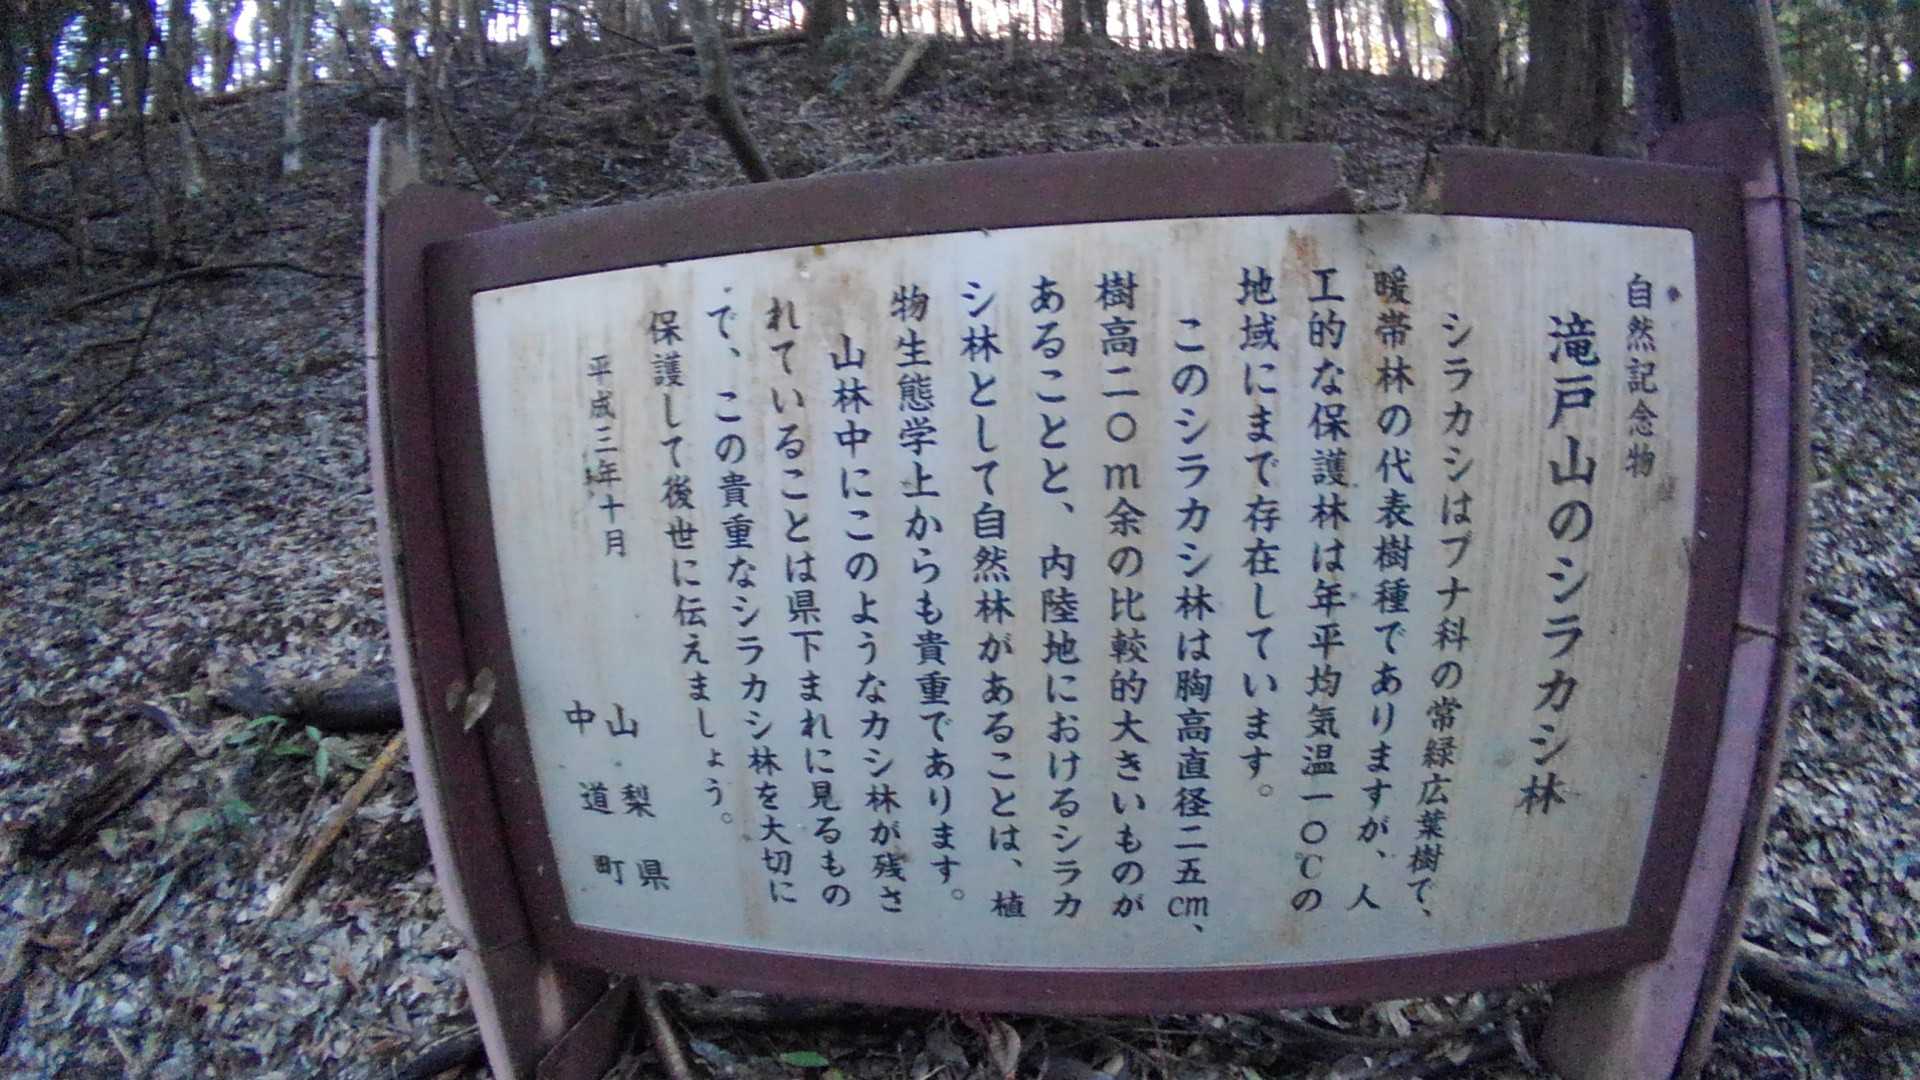 自然記念物
滝戸山のシラカシ林
シラカシはブナ科の常緑広葉樹で、
暖帯林の代表樹種でありますが、人
工的な保護林は年平均気温一〇℃の
地域にまで存在しています。
このシラカシ林は胸高直径二五cm、
樹高二〇m余の比較的大きいものが
あることと、内陸地におけるシラカ
シ林として自然林があることは、植
物生態学上からも貴重であります。
山林中にこのようなカシ林が残さ
れていることは県下まれに見るもの
で、この貴重なシラカシ林を大切に
保護して後世に伝えましょう。
平成三年十月
山梨県
中道町